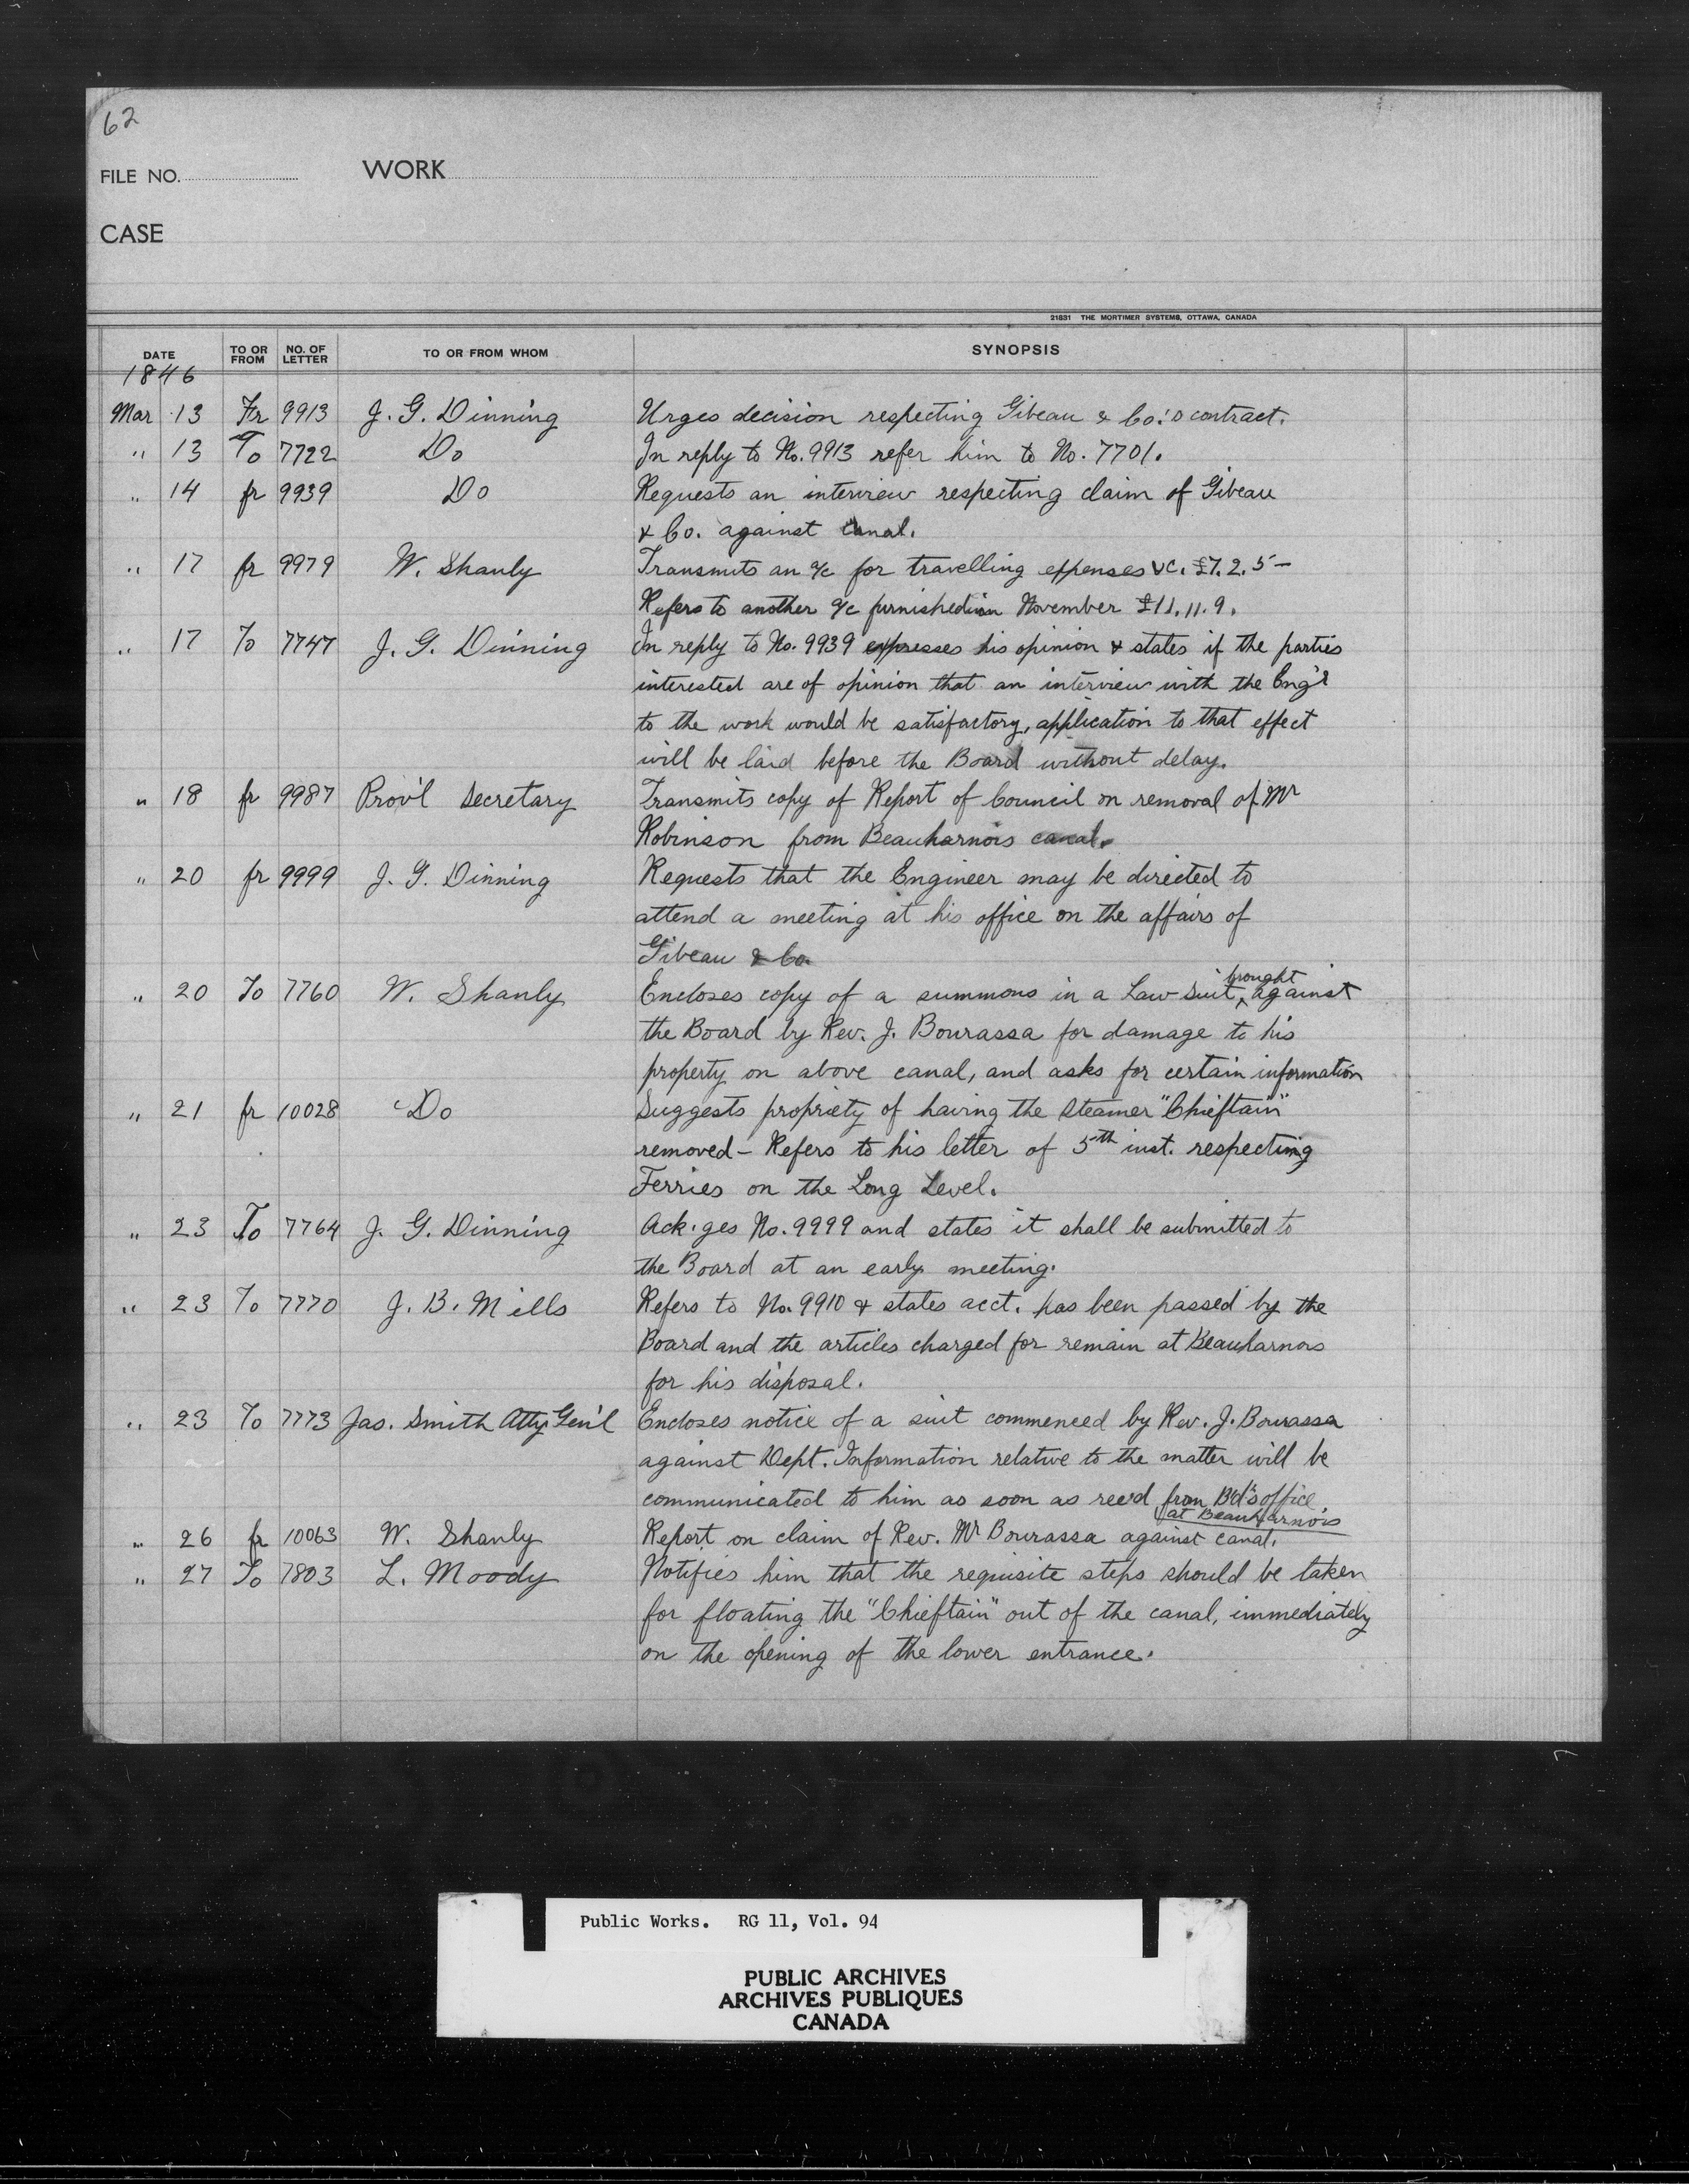 62
FILE NO. WORK
CASE
21831 THE MORTIMER SYSTEMS, OTTAWA, CANADA
DATE TO OR FROM NO. OF LETTER TO OR FROM WHOM SYNOPSIS
1846
Mar 13 Fr 9913 J. G. Dinning Urges decision respecting Gibeau & Co.'s contract.
" 13 To 7722 Do In reply to No. 9913 refer him to No. 7701.
" 14 fr 9939 Do Requests an interview respecting claim of Gibeau
& Co. against canal.
" 17 fr 9979 W. Shanly Transmits an a/c for travelling expenses &c. £7.2.5 -
Refers to another a/c furnished in November £11.11.9.
" 17 To 7747 J. G. Dinning In reply to No. 9939 expresses his opinion & states if the parties
interested are of opinion that an interview with the Eng'r
to the work would be satisfactory, application to that effect
will be laid before the Board without delay.
" 18 fr 9987 Prov'l Secretary Transmits copy of Report of Council on removal of Mr
Robinson from Beauharnois canal.
" 20 fr 9999 J. G. Dinning Requests that the Engineer may be directed to
attend a meeting at his office on the affairs of
Gibeau & Co.
" 20 To 7760 W. Shanly Encloses copy of a summons in a Law Suit, brought against
the Board by Rev. J. Bourassa for damage to his
property on above canal, and asks for certain information
" 21 fr 10028 Do Suggests propriety of having the Steamer "Chieftain"
removed - Refers to his letter of 5th inst. respecting
Ferries on the Long Level.
" 23 To 7764 J. G. Dinning Ack'ges No. 9999 and states it shall be submitted to
the Board at an early meeting.
" 23 To 7770 J. B. Mills Refers to No. 9910 & states acct. has been passed by the
Board and the articles charged for remain at Beauharnois
for his disposal.
" 23 To 7773 Jas. Smith Atty Gen'l Encloses notice of a suit commenced by Rev. J. Bourassa
against Dept. Information relative to the matter will be
communicated to him as soon as rec'd from B'd's office
at Beauharnois
" 26 fr 10063 W. Shanly Report on claim of Rev. Mr Bourassa against canal.
" 27 To 7803 L. Moody Notifies him that the requisite steps should be taken
for floating the "Chieftain" out of the canal, immediately
on the opening of the lower entrance.
Public Works. RG 11, Vol. 94
PUBLIC ARCHIVES
ARCHIVES PUBLIQUES
CANADA